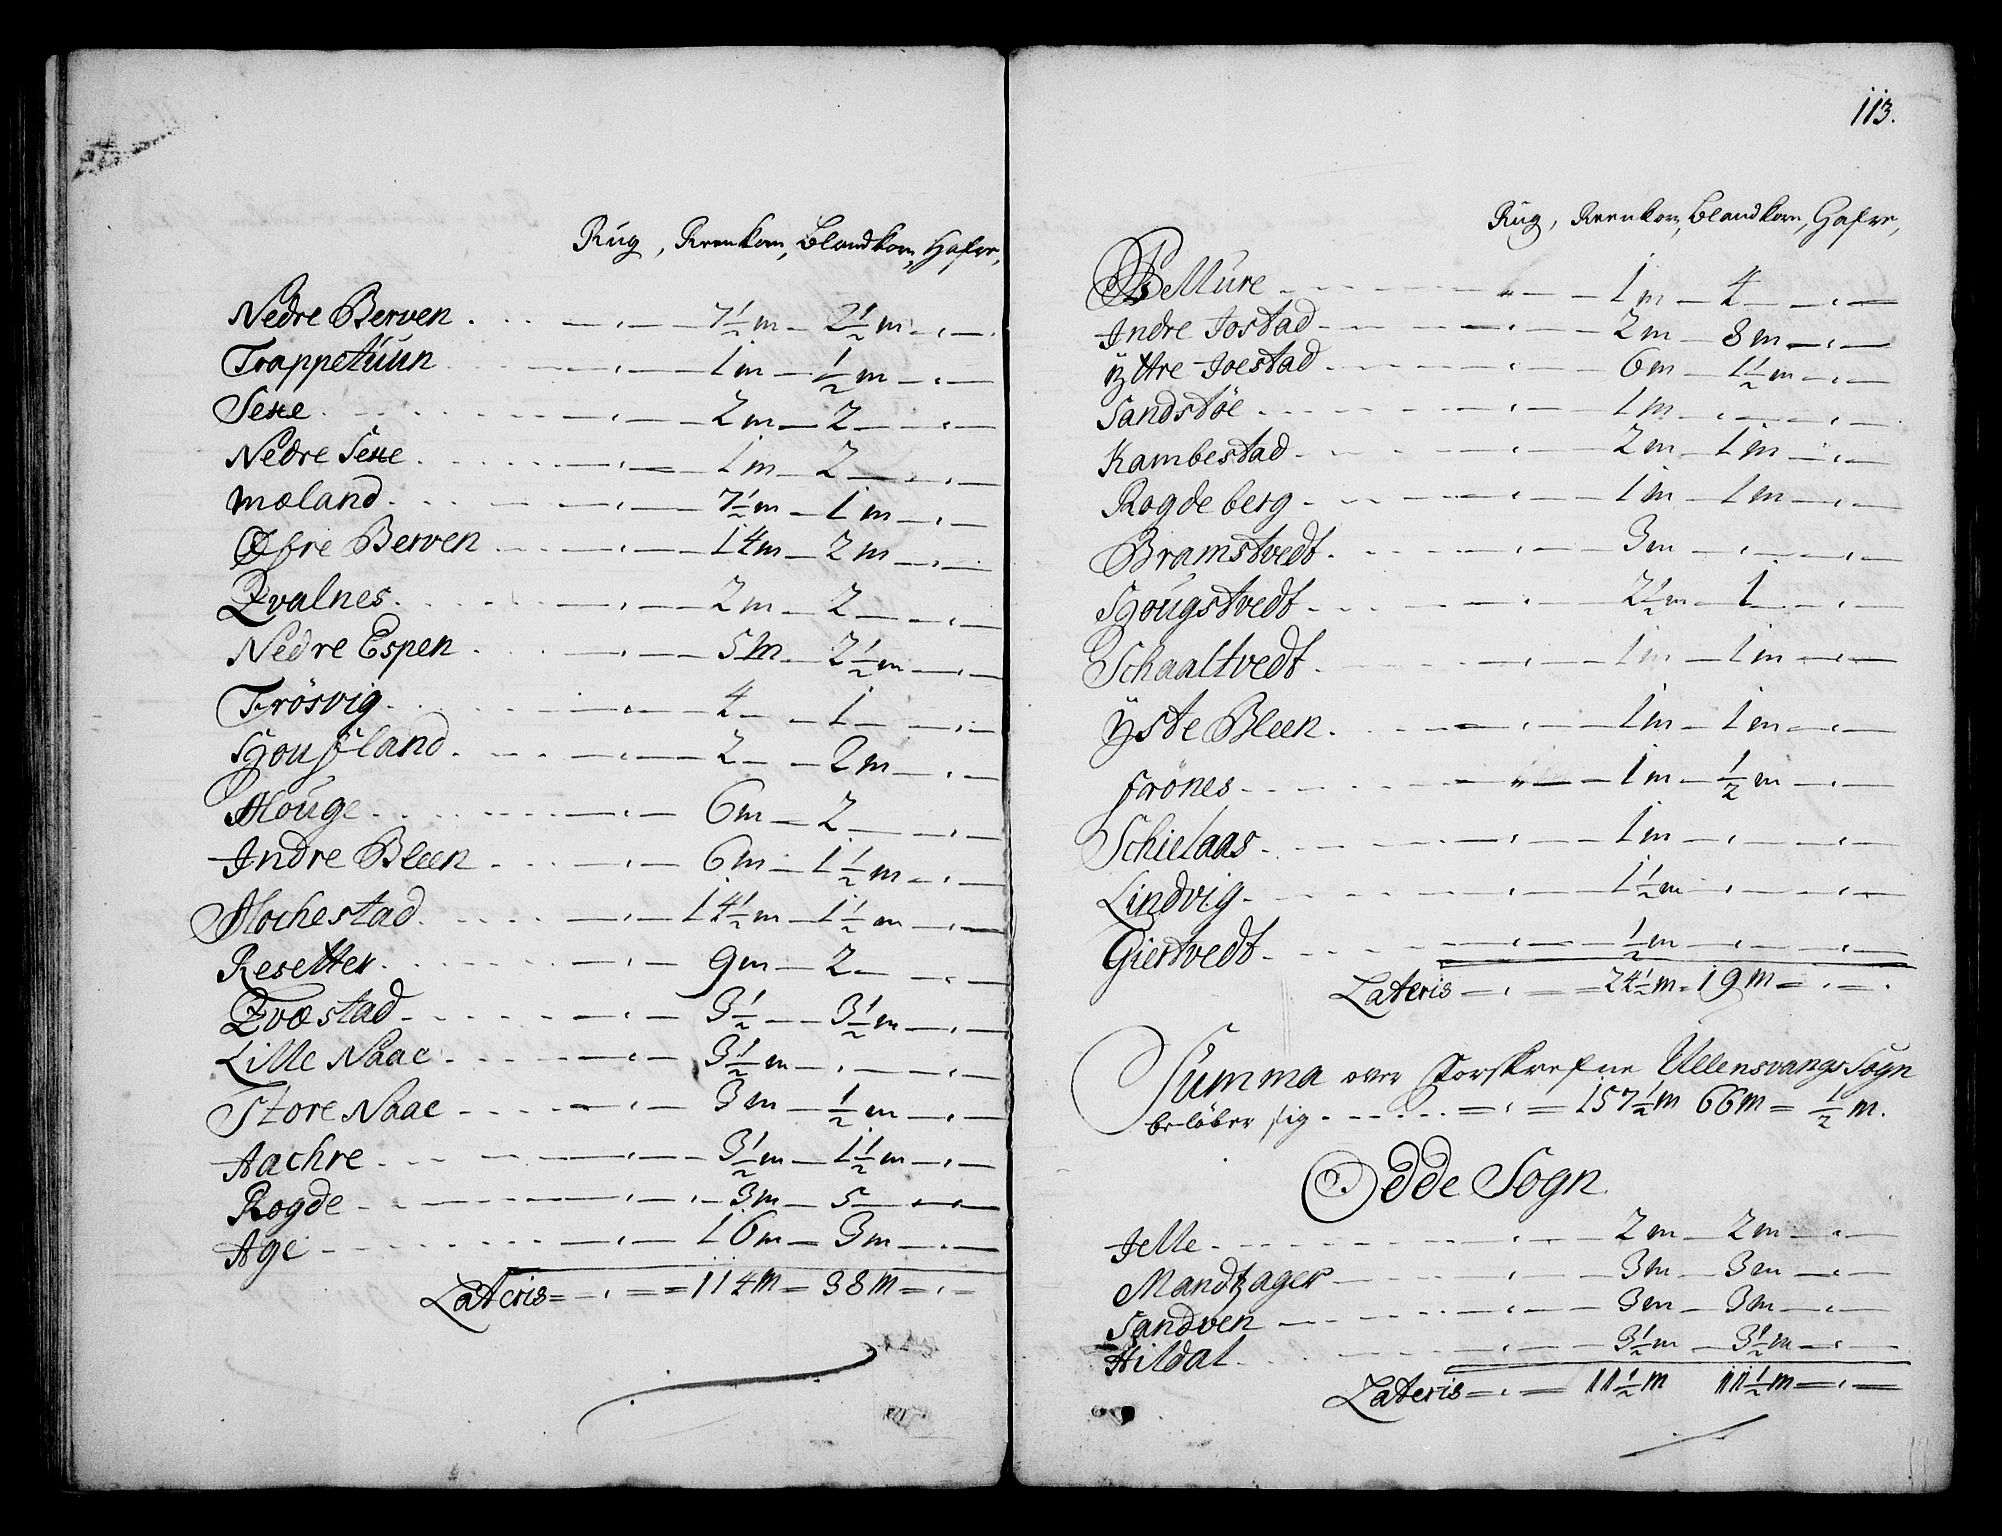 Rug, Reenkorn, Blandkorn, Hafre,
Nedre Berven . . . — , — 7½ m — 2½ m — , —
Trappetuun . . . — , — 1 m — ½ m — , —
Sexe . . . — , — 2 m — 2 — , —
Nedre Sexe . . . — , — 1 m — 2 — , —
Mæland . . . — , — 7½ m — 1 m — , —
Øfre Berven . . . — , — 14 m — 2 m — , —
Qvalnes . . . — , — 2 m — 2 — , —
Nedre Espen . . . — , — 5 m — 2½ m — , —
Frösvig . . . — , — 4 — 1 — , —
Houfland . . . — , — 2 — 2 m — , —
Houge . . . — , — 6 m — 2 — , —
Indre Bleen . . . — , — 6 m — 1½ m — , —
Hochestad . . . — , — 14½ m — 1½ m — , —
Resetter . . . — , — 9 m — 2 — , —
Qvæstad . . . — , — 3½ — 3½ m — , —
Lille Naae . . . — , — 3½ m — , — , —
Store Naae . . . — , — 3 m — ½ m — , —
Aachre . . . — , — 3½ m — 1½ m — , —
Rogde . . . — , — 3 m — 5 — , —
Age . . . — , — 16 m — 3 m — , —
Lateris = , = 114 m = 38 m = , =
113.
Rug, Reenkorn, Blandkorn, Hafre,
Bellure . . . — " — 1 m — 4 — , —
Indre Jostad . . . — , — 2 m — 8 m — , —
ÿttre Joestad . . . — , — 6 m — 1½ m — , —
Sandstöe . . . — , — 1 m — , — , —
Kambestad . . . — , — 2 m — 1 m — , —
Rogde berg . . . — , — 1 m — 1 m — , —
Bramstvedt . . . — , — 3 m — , — , —
Hougstvedt . . . — , — 2½ m — 1 — , —
Schaaltvedt . . . — , — 1 m — 1 m — , —
ÿste Bleen . . . — , — 1 m — 1 m — , —
frönes . . . — " — 1 m — ½ m — , —
Schielaas . . . — , — 1 m — , — , —
Lindvig . . . — , — 1½ m — , — , —
Giertvedt . . . — , — ½ m — , — , —
Lateris = , = 24½ m = 19 m = , =
Summa over Forskrefne Ullensvangs Sogn
belöber sig . . . = , = 157½ m 66 m = ½ m.
Odde Sogn.
Jelle . . . — , — 2 m — 2 m — , —
Mandtzager — , — 3 m — 3 m — , —
Sandven . . . — , — 3 m — 3 m — , —
Hildal . . . — , — 3½ m — 3½ m — , —
Lateris = , = 11½ m 11½ m = , =